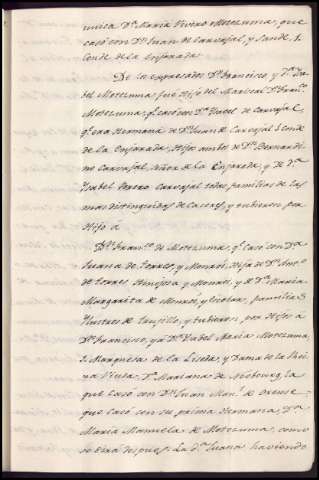 unica Dª. Maria Pivero Motezuma, que
casó con Dn. Juan de Carvajal, y Sande, 1.
Conde de la Enjarada.
De los expresados Dn. Francisco, y Dª. Isa-
bel Motezuma fué Hijo del Mariscal Dn. Franco.
Motezuma, q. casó con Dª. Isabel de Carvajal,
q. era Hermana de Dn. Juan de Carvajal 1. Conde
de la Enjarada, Hijos ambos de Dn. Bernardi-
no Carvajal, Señor de la Enjarada, y de Dª.
Ysabel Carvajal todas familias de las
mas distinguidas de Caceres, y tubieron por
Hijo á
Dn. Franco. de Motezuma, q. casó con Dª.
Juana de Torres, y Monroi, Hija de Dn.
de Torres y Monroi, y de Dª. Maria
Margarita de Monroi, y familias
Ylustres de Trujillo, y tubieron por Hijos á
Dn. Francisco, y á Dª. Ysabel Maria Motezuma,
Marquesa de la Liseda, y Dama de la Rei-
na Viuda, Dª. Mariana de Neoburg, la
que casó con Dn. Juan Manl. de
que casó con su prima Hermana, Dª.
Maria Manuela de Motezuma, como
se dirá despues. La dha. Juana haviendo